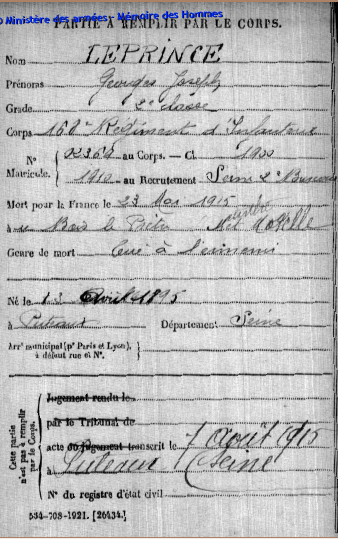 © Ministère des armées - Mémoire des Hommes
PARTIE À REMPLIR PAR LE CORPS.
Nom LEPRINCE
Prénoms Georges Joseph
Grade 2e classe
Corps 168e Régiment d'Infanterie
N° au Corps. — Cl. 1900
Matricule. 1910 au Recrutement Seine 2e Bureau
Mort pour la France le 23 Mai 1915
à Bois le Prêtre
Genre de mort Tué à l'ennemi
Né le Avril 1895
à Puteaux Département Seine
Arrt municipal (pr Paris et Lyon),
à défaut rue et N°.
Cette partie
n'est pas à remplir
par le Corps.
Jugement rendu le
par le Tribunal de
acte ou jugement transcrit le 7 Août 1915
à Puteaux (Seine
N° du registre d'état civil
534-708-1921. [26434.]